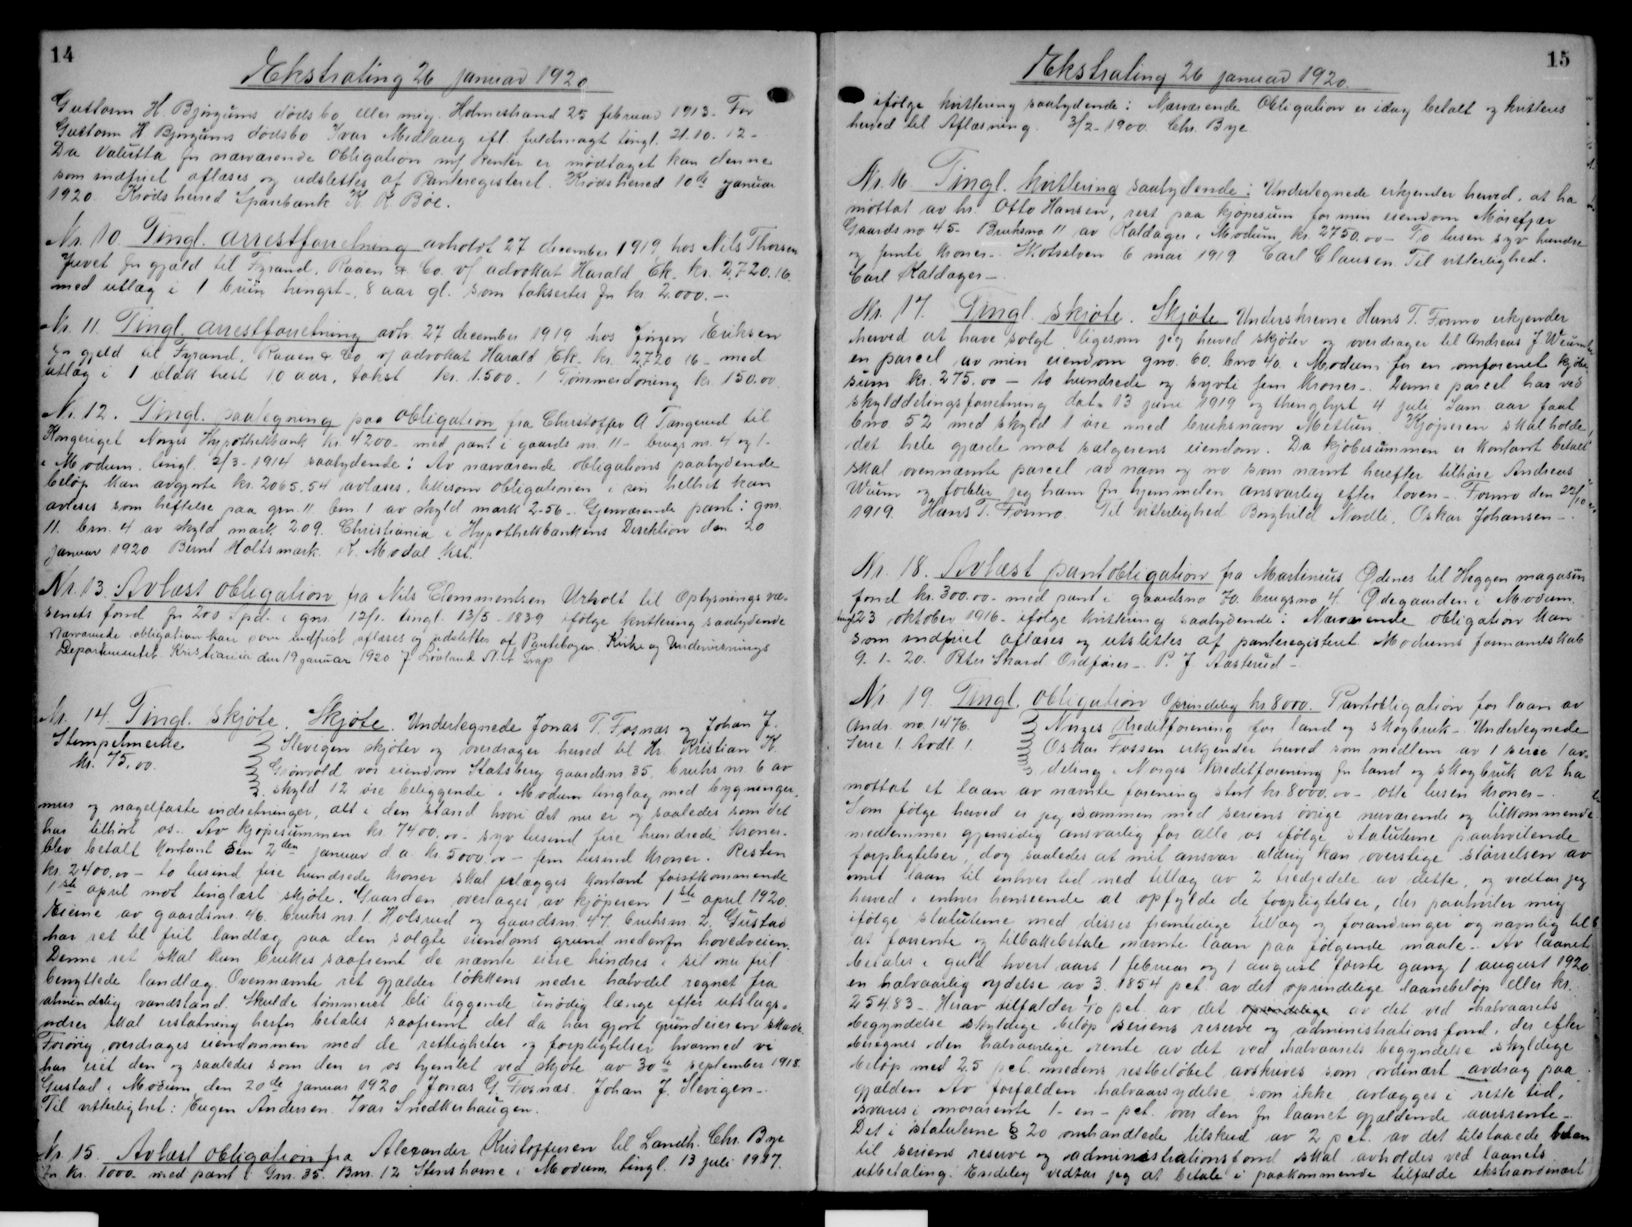 14
Ekstrating 26 januar 1920
Guttorm H Bjørgums dødsbo eller mig. Holmestrand 25 februar 1913. For
Guttorm H Bjørgums dødsbo Ivar Medlaug efl. fuldmagt tingl. 21.10.12 -
Da Valutta for nærværende Obligation m/ Renter er modtaget kan denne
som indfriet aflæses og udslettes af Panteregisteret. Krødsherred 10de januar
1920 Krødsherred Sparebank K K Bøe.
Nr. 10. Tingl. arrestforretning avholdt 27 december 1919 hos Nils Thorsen
Juvet for gjæld til Fyrand, Raaen & Co. v/ advokat Harald Ek. kr. 2720.16
med utlæg i 1 brun hengst, 8 aar gl. som taksertes for kr. 2000.-
Nr. 11. Tingl. arrestforretning avh. 27 december 1919 hos Jørgen Eriksen
for gjeld til Fyrand, Raaen & Co v/ advokat Harald Ek. kr. 2720 16 - med
utlæg i 1 blakk hest 10 aar, takst kr. 1500. 1 Tømmerdoning kr. 150.00
Nr. 12. Tingl. paategning paa obligation fra Christoffer A Tangerud til
Kongeriget Norges Hypothekbank kr. 4200 - med pant i gaards nr. 11 - brugs nr. 4 og 1 -
i Modum. tingl. 2/3-1914 saalydende: Av nærværende obligations paalydende
beløp kan avgjorte kr. 2065.54 avlæses, likesom obligationen i sin helhet kan
avlæses som heftelse paa gnr. 11 bnr 1 av skyld mark 2-56 - Gjenværende pant: gnr.
11. bnr. 4 av skyld mark 2 09. Christiania i Hypothekbankens Direktion den 20
januar 1920 Bernt Holtsmark. K. Modal kst.
Nr. 13. Avlæst obligation fra Nils Clemmentsen Urholt til Oplysningsvæ-
senets fond for 200 Spd. i gnr. 12/1. tingl. 13/5-1839 ifølge kvittering saalydende
Nærværende obligation kan som indfriet aflæses og udslettes af Pantebogen Kirke og Undervisnings
Departementet Kristiania den 19 januar 1920 J Løvland
Nr. 14. Tingl. skjøte. Skjøte. Undertegnede Jonas T. Fosnæs og Johan J.
Stempelmerke
kr. 75.00.
Slevigen skjøter og overdrager herved til Hr. Kristian K.
Grønvold vor eiendom Statsberg gaardsnr. 35. bruks nr. 6 av
skyld 12 øre beliggende i Modum tinglag med bygninger,
mur og nagelfaste indretninger, alt i den stand hvori det nu er og saaledes som det
har tilhørt os. Av kjøpesummen kr. 7400.00 - syv tusind fire hundrede kroner -
blev betalt kontant den 2den januar d.a. kr. 5000.00 - fem tusind kroner. Resten
kr. 2400.00 - to tusind fire hundrede kroner skal erlægges kontant førstkommende
1ste april mot tinglæst skjøte. Gaarden overtages av kjøperen 1ste april 1920.
Eierne av gaardsnr. 46. bruks nr. 1 Holsrud og gaardsnr. 47. bruksnr. 2. Gustad
har ret til frit landlæg paa den solgte eiendoms grund nedenfor hovedveien.
Denne ret skal kun brukes saafremt de nævnte eiere hindres i sit nu frit
benyttede landlæg. Ovennævnte ret gjælder løkkens nedre halvdel regnet fra
almindelig vandstand. Skulde tømmeret bli liggende unødig længe efter utslags-
ordrer skal erstatning herfor betales saafremt det da har gjort grundeieren skade.
Forøvrig overdrages eiendommen med de rettigheter og forpligtelser hvormed vi
har eiet den og saaledes som den er os hjemlet ved skjøte av 30te september 1918.
Gustad i Modum den 20de januar 1920 Jonas G. Fosnæs. Johan J. Slevigen -
Til vitterlighet: Eugen Andersen. Ivar Snedkerhaugen.
Nr. 15. Avlæst obligation fra Alexander Kristoffersen til Landh. Chr. Bye
for kr. 1000 - med pant i Gnr. 35. Bnr. 12 Stenshorne i Modum, tingl. 13 juli 1987.
15
Ekstrating 26 januar 1920.
ifølge kvittering saalydende: Nærværende Obligation er idag betalt og kvitteres
herved til Aflæsning. 3/2-1900. Chr. Bye
Nr. 16 Tingl. kvittering saalydende: Undertegnede erkjender herved, at ha
mottat av hr. Otto Hansen, rest paa kjøpesum for min eiendom Morefjær
Gaards no 45 - Bruksno 11 av Kaldager i Modum kr. 2750.00 - To tusen syv hundre
og femti kroner - Skotselven 6 mai 1919 Carl Clausen. Til vitterlighed.
Carl Kaldager -
Nr. 17. Tingl. skjøte. Skjøte Underskrevne Hans T. Formo erkjender
herved at have solgt, ligesom jeg herved skjøter og overdrager til Andreas J. Wium
en parcel av min eiendom gno. 60. bno 40. i Modum for en omforenet kjøbe-
sum kr. 275.00 - to hundrede og sytti fem kroner - Denne parcel har ved
skylddelingsforretning dat. 13 juni 1919 og thinglyst 4 juli sam aar faat
bno 52 med skyld 1 øre med bruksnavn Mellum. Kjøperen skal holde
det hele gjærde mot sælgerens eiendom. Da kjøbesummen er kontant betalt
skal ovennævnte parcel av navn og no som nævnt herefter tilhøre Andreas
Wium og forbler jeg ham for hjemmelen ansvarlig efter loven - Formo den 22/10
1919 Hans T. Formo. Til Vitterlighed Borghild Nordli. Oskar Johansen -
Nr. 18. Avlæst pantobligation fra Martinius Ødenes til Heggen magasin
fond kr. 300.00 - med pant i gaardsno 70. brugsno 4. Ødegaarden i Modum.
tingl 23 oktober 1916 - ifølge kvittering saalydende: Nærværende obligation kan
som indfriet aflæses og utslettes af panteregisteret Modums formandskab
9.1.20. Peter Skard Ordfører - P. J Aasterud -
Nr 19. Tingl. obligation Oprindelig kr 8000. Pantobligation for laan av
Andr. no. 1476.
Serie 1. Avdl. 1.
Norges Kreditforening for land og skogbruk - Undertegnede
Oskar Fossen erkjender herved som medlem av 1 serie 1 av-
deling i Norges kreditforening for land og skogbruk at ha
mottat et laan av nævnte forening stort kr 8000.00 - otte tusen kroner -
Som følge herved er jeg sammen med seriens øvrige nuværende og tilkommende
medlemmer gjensidig ansvarlig for alle os ifølge statuterne paahvilende
forpligtelser, dog saaledes at mit ansvar aldrig kan overstige størrelsen av
mit laan til enhver tid med tillæg av 2 tredjedele av dette, og vedtar jeg
herved i enhver henseende at opfylde de forpligtelser, der paahviler mig
ifølge statuterne med disses fremtidige tillæg og forandringer og navnlig til
at forrente og tilbakebetale nævnte laan paa følgende maate. Av laanet
betales i guld hvert aars 1 februar og 1 august første gang 1 august 1920
en halvaarlig ydelse av 3.1854 pct. av det oprindelige laanebeløp eller kr.
254.83 - Herav tilfalder 1/10 pct. av det oprindelige av det ved halvaarets
begyndelse skyldige beløp seriens reserve og administrationsfond, der efter
beregnes den halvaarlige rente av det ved halvaarets begyndelse skyldige
beløp med 2.5 pct. medens restbeløbet avskrives som ordinært avdrag paa
gjælden Av forfalden halvaarsydelse, som ikke avlægges i rette tid,
svares i morarente 1 - en - pct. over den for laanet gjældende aarsrente -
Det i statuterne § 20 omhandlede tilskud av 2 pct. av det tilstaaede laan
til seriens reserve og administrationsfond skal avholdes ved laanets
utbetaling. Endelig vedtar jeg at betale i paakommende tilfælde ekstraordinært